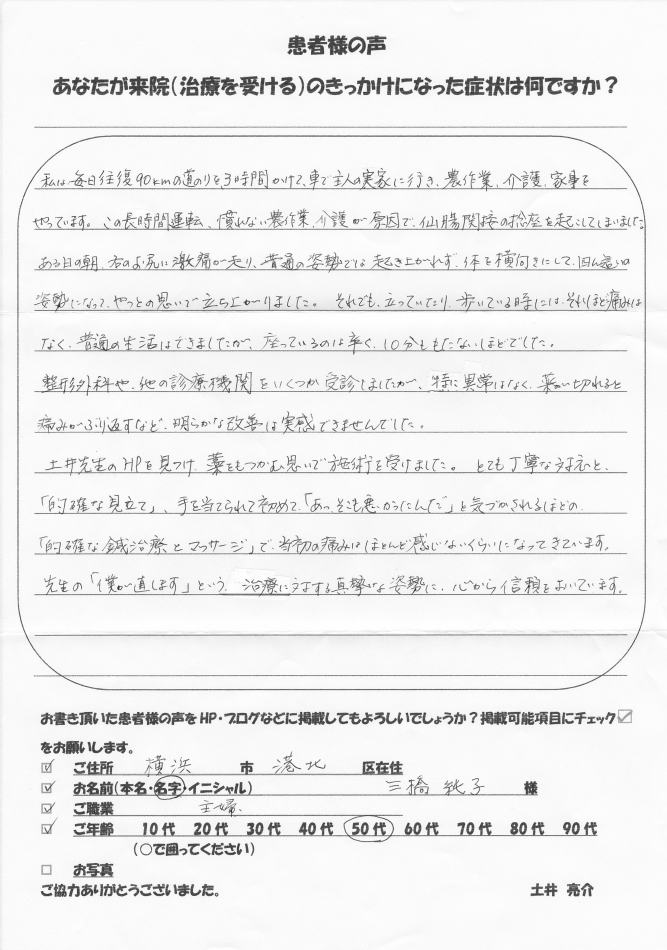 患者様の声
あなたが来院(治療を受ける)のきっかけになった症状は何ですか?
私は毎日往復90kmの道のりを3時間かけて、車で主人の実家に行き、農作業、介護、家事を
やっています。この長時間運転、慣れない農作業、介護が原因で、仙腸関接の捻座を起こしてしまいました。
ある日の朝、右のお尻に激痛が走り、普通の姿勢では起き上がれず、体を横向きにして、四ん這いの
姿勢になって、やっとの思いで立ち上がりました。それでも、立っていたり、歩いている時には、それほど痛みは
なく、普通の生活はできましたが、座っているのは辛く、10分ももたないほどでした。
整形外科や、他の診療機関をいくつか受診しましたが、特に異常はなく、薬が切れると
痛みがぶり返すなど、明らかな改善は実感できませんでした。
土井先生のHPを見つけ、藁をもつかむ思いで施術を受けました。とても丁寧な対応と、
「的確な見立て」、手を当てられて初めて、「あっ、そこも悪かったんだ」と気づかされるほどの、
「的確な鍼治療とマッサージ」で、当初の痛みはほとんど感じないくらいになってきています。
先生の「僕が直します」という、治療に対する真摯な姿勢に、心から信頼をおいています。
お書き頂いた患者様の声をHP・ブログなどに掲載してもよろしいでしょうか?掲載可能項目にチェック☑
をお願いします。
☑ ご住所 横浜 市 港北 区在住
☑ お名前(本名・名字・イニシャル) 三橋 純子 様
☑ ご職業 主婦
☑ ご年齢 10代 20代 30代 40代 50代 60代 70代 80代 90代
(○で囲ってください)
☐ お写真
ご協力ありがとうございました。 土井 亮介